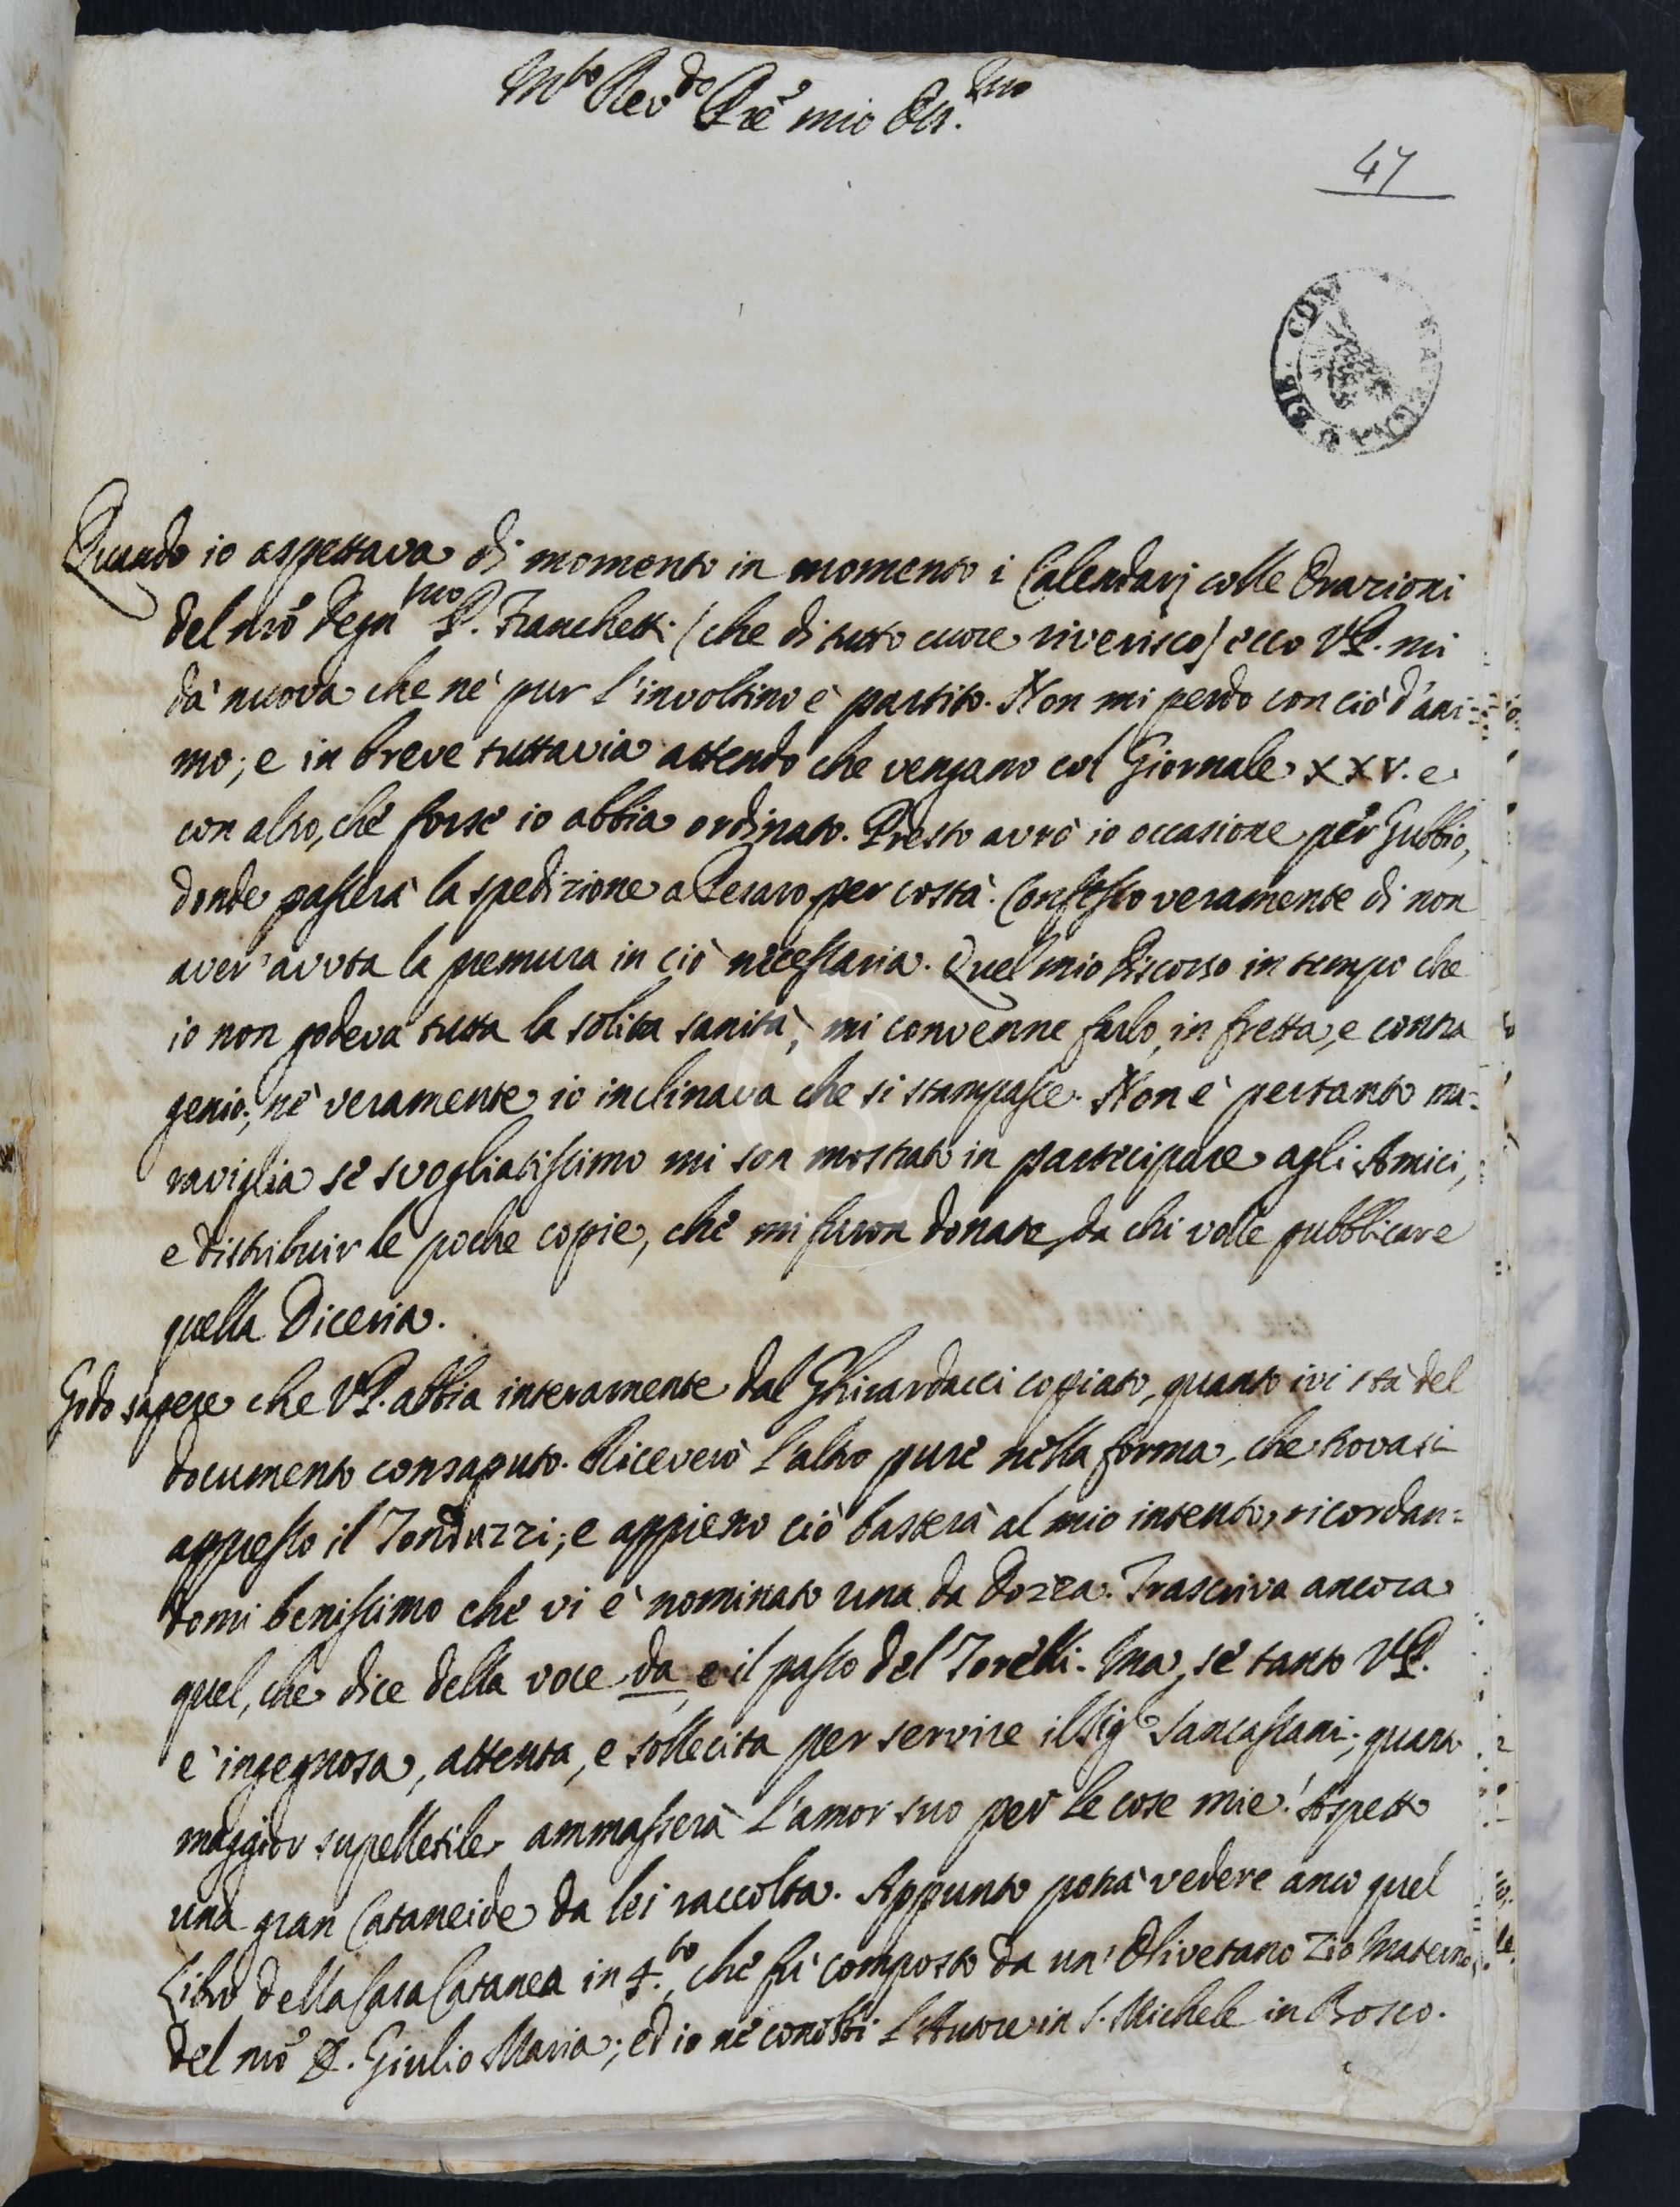 M.to Rev.do Pre mio Oss.mo
47
Quando io aspettava di momento in momento i Calendarj colle Orazioni
del nro Degn.mo P. Franchetti (che di tutto cuore riverisco) ecco V.P. mi
dà nuova che nè pur l'involtino è partito. Non mi perdo con ciò d'ani=
mo; e in breve tuttavia attendo che vengano col Giornale XXV. e
con altro, che forse io abbia ordinato. Presto avrò io occasione per Gubbio,
donde passerà la spedizione a Pesaro per costà. Confesso veramente di non
aver' avuta la premura in ciò necessaria. Quel mio Discorso in tempo che
io non godeva tutta la solita sanità, mi convenne farlo in fretta, e contra
genio; nè veramente io inclinava che si stampasse. Non è pertanto ma=
raviglia se svogliatissimo mi son mostrato in partecipare agli Amici,
e distribuir le poche copie, che mi furon donate da chi volle pubblicare
quella Diceria.
Godo sapere che V.P. abbia interamente dal Ghirardacci copiato, quanto ivi stà del
documento consaputo. Riceverò l'altro pure nella forma, che trovasi
appresso il Tonduzzi; e appieno ciò basterà al mio intento, ricordan=
domi benissimo che vi è nominato una da Dozza. Trascriva ancora
quel, che dice della voce da, e il passo del Torelli. Ma, se tanto V.P.
è ingegnosa, attenta, e sollecita per servire il Sig.r Sancassani; quanto
maggior supelletile ammasserà l'amor suo per le cose mie! Aspetto
una gran Cataneide da lei raccolta. Appunto potrà vedere anco quel
Libro della Casa Catanea in 4.to, che fù composto da un' Olivetano Zio Materno
del nro D. Giulio Maria; ed io ne conobbi l'Autore in S. Michele in Bosco.